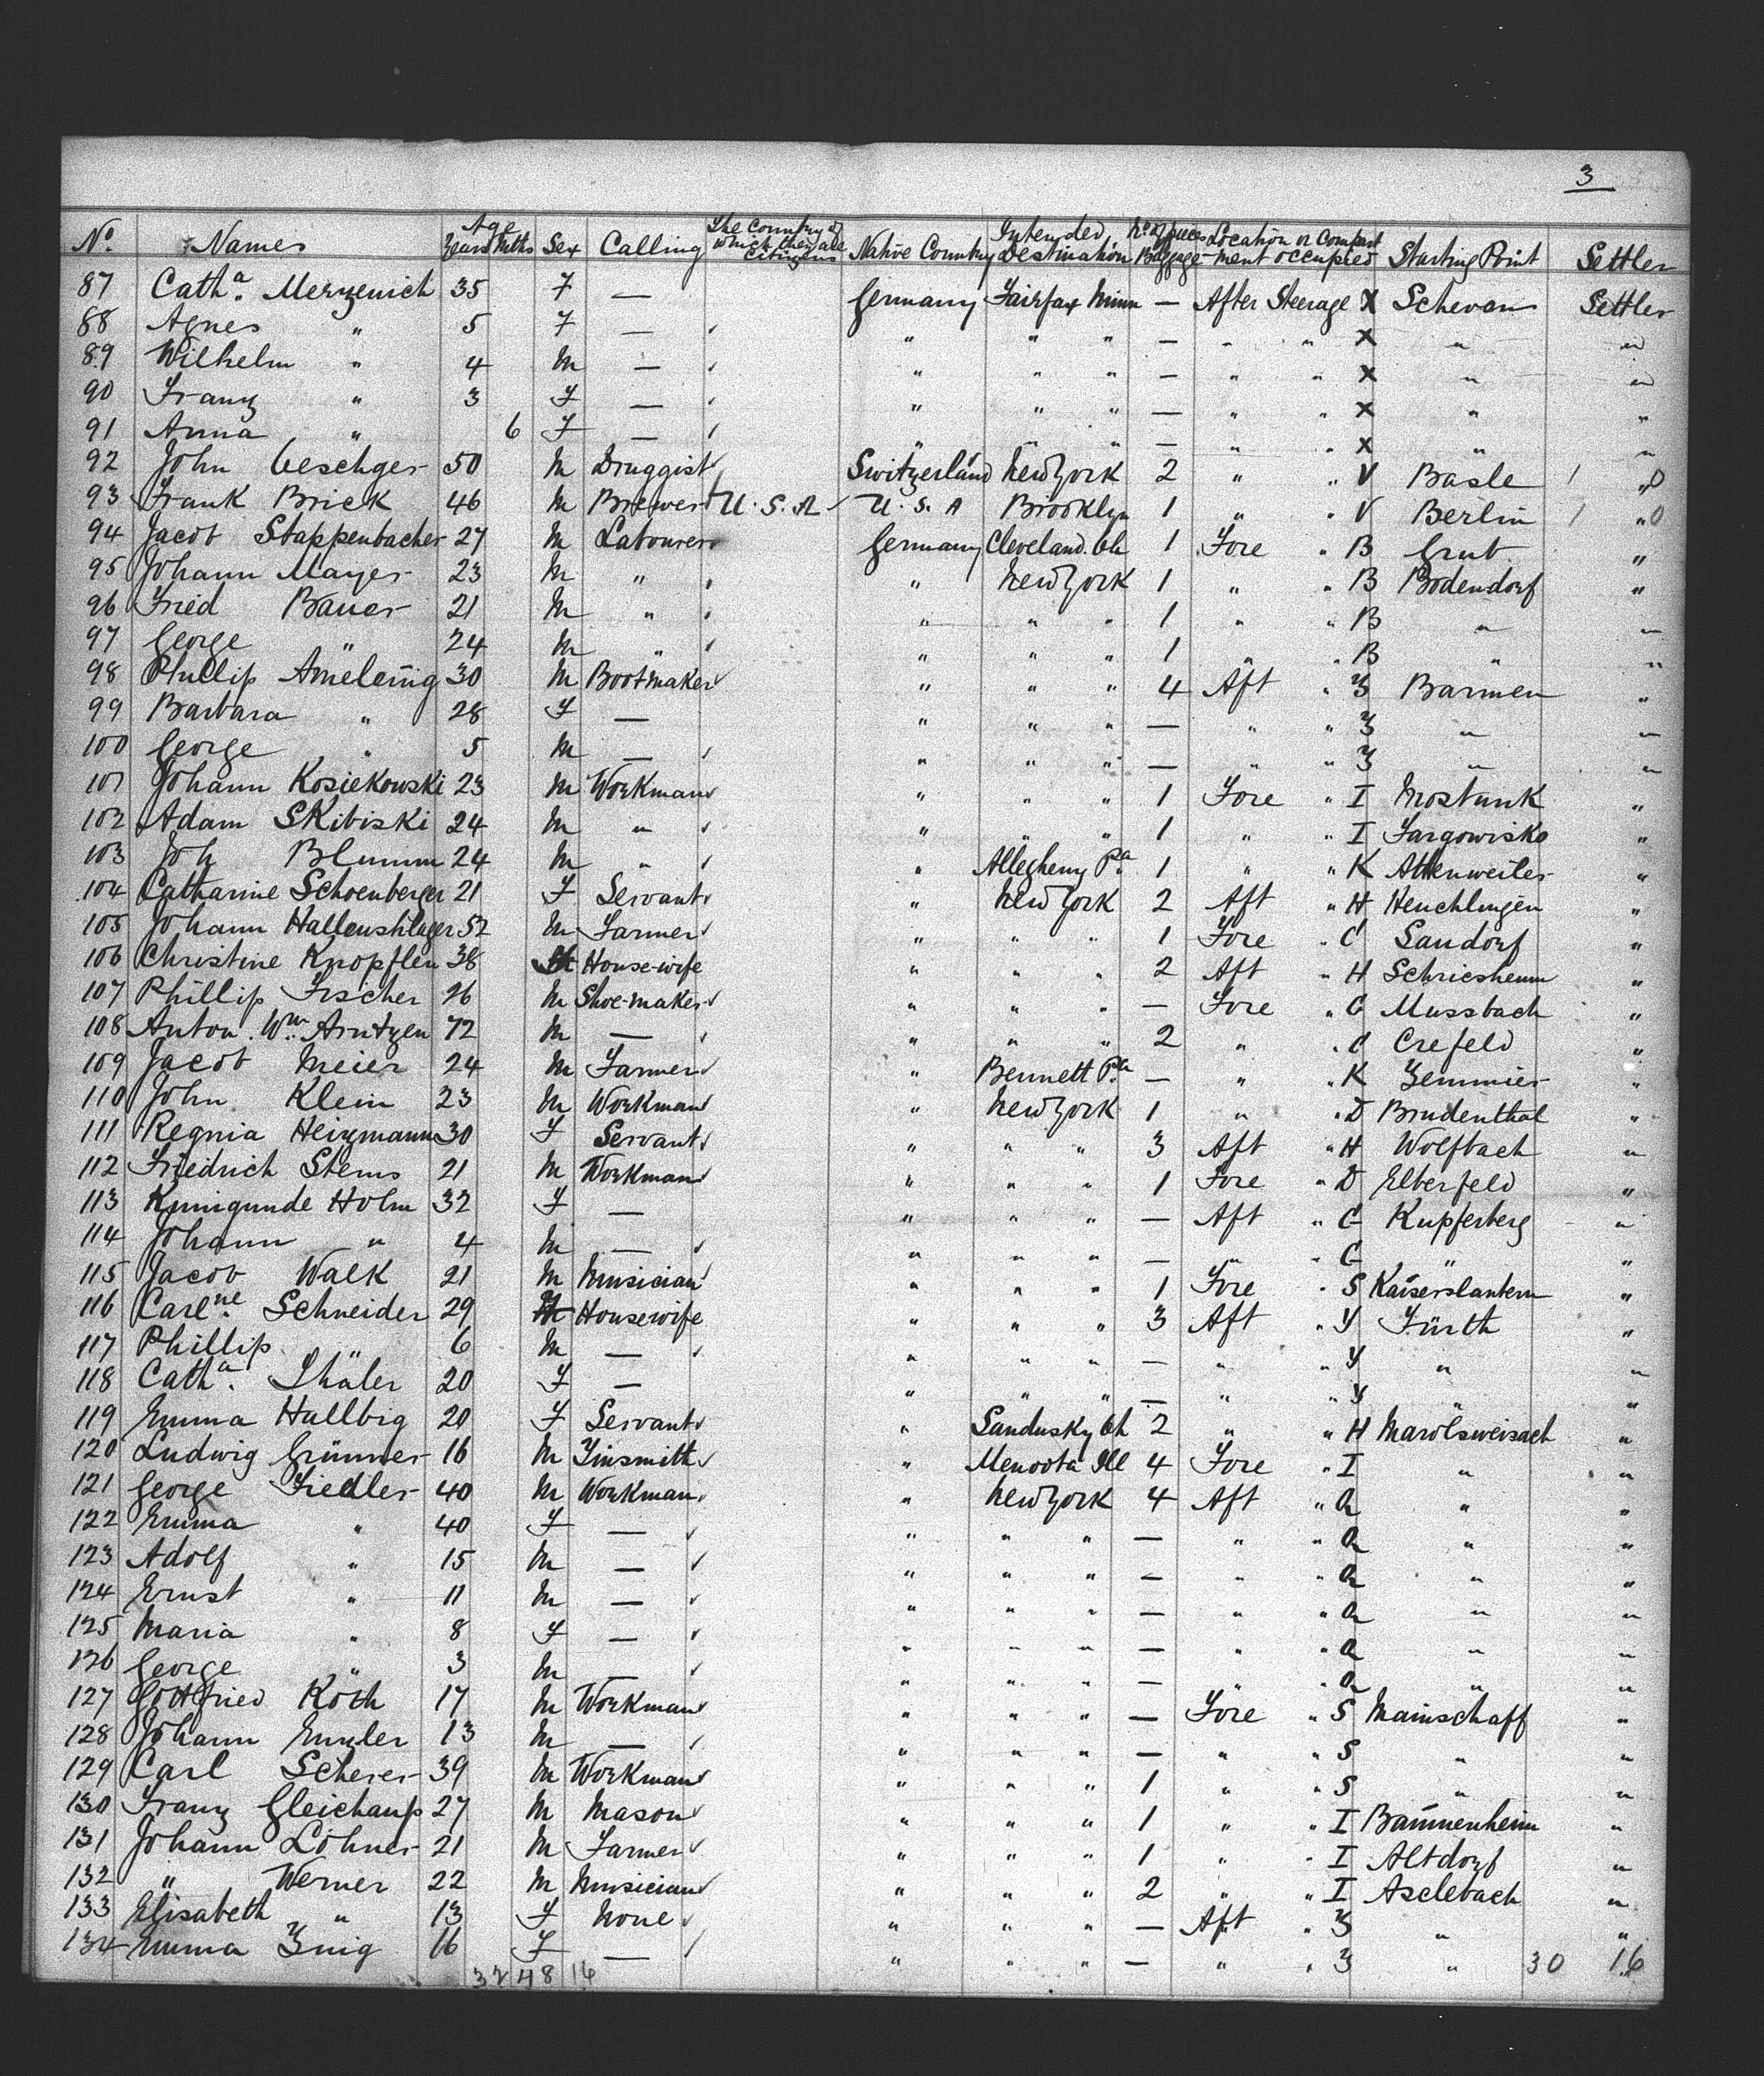 3
No. Names Age Years Mths Sex Calling The Country of which they are Citizens Native Country Intended Destination No. of pieces Baggage Location or Compartment occupied Starting Point Settler
87 Catha. Merzenich 35 F — Germany Fairfax Minn — After Steerage X Schevan Settler
88 Agnes " 5 F — " " " — " " X " "
89 Wilhelm " 4 M — " " " — " " X " "
90 Franz " 3 F — " " " — " " X " "
91 Anna " 6 F — " " " — " " X " "
92 John Oeschger 50 M Druggist Switzerland New York 2 " V Basle 1 " 0
93 Frank Brick 46 M Brewer U.S.A U.S.A Brooklyn 1 " V Berlin 1 " 0
94 Jacob Stappenbacher 27 M Labourer Germany Cleveland. Oh 1 Fore " B Grub "
95 Johann Mayer 23 M " " New York 1 " " B Bodendorf "
96 Fried Bauer 21 M " " " " 1 " " B " "
97 George " 24 M " " " " 1 " " B " "
98 Phillip Ameleing 30 M Bootmaker " " " 4 Aft " Z Barmen "
99 Barbara " 28 F — " " " — " " Z " "
100 George " 5 M — " " " — " " Z " "
101 Johann Kosiekowski 23 M Workman " " " 1 Fore " I Mostunk "
102 Adam Skibiski 24 M " " " " 1 " " I Targowisko "
103 Joh Blumm 24 M " " Allegheny Pa 1 " " K Attenweiler "
104 Catharine Schoenberger 21 F Servant " New York 2 Aft " H Heuchlingen "
105 Johann Hallenshlager 52 M Farmer " " " 1 Fore " C Sandorf "
106 Christine Knopflen 38 House-wife " " " 2 Aft " H Schriesheim "
107 Phillip Fischer 26 M Shoe-maker " " " — Fore " C Mussbach "
108 Anton. Wm. Arntzen 72 M — " " " 2 " " C Crefeld "
109 Jacob Meier 24 M Farmer " Bennett Pa — " " K Zemmier "
110 John Klein 23 M Workman " New York 1 " " D Brudenthal "
111 Regnia Heizmann 30 F Servant " " " 3 Aft " H Wolfbach "
112 Friedrich Stems 21 M Workman " " " 1 Fore " D Elberfeld "
113 Kunigunde Holm 32 F — " " " — Aft " G Kupferberg "
114 Johann " 4 M — " " " — " " G " "
115 Jacob Walk 21 M Musician " " " 1 Fore " S Kaiserslautern "
116 Carlne. Schneider 29 Housewife " " " 3 Aft " Y Fürth "
117 Phillip " 6 M — " " " — " " Y " "
118 Catha. Shäler 20 F — " " " — " " Y " "
119 Emma Hallbig 20 F Servant " Sandusky Oh 2 " " H Marolsweisach "
120 Ludwig Grümmer 16 M Tinsmith " Menoota Ill 4 Fore " I " "
121 George Fiedler 40 M Workman " New York 4 Aft " Q " "
122 Emma " 40 F — " " " — " " Q " "
123 Adolf " 15 M — " " " — " " Q " "
124 Ernst " 11 M — " " " — " " Q " "
125 Maria " 8 F — " " " — " " Q " "
126 George " 3 M — " " " — " " Q " "
127 Gottfried Koth 17 M Workman " " " — Fore " S Mainschaff "
128 Johann Emler 13 M — " " " — " " S " "
129 Carl Scherer 39 M Workman " " " 1 " " S " "
130 Franz Gleichauf 27 M Mason " " " 1 " " I Bammenheim "
131 Johann Löhner 21 M Farmer " " " 1 " " I Altdorf "
132 " Werner 22 M Musician " " " 2 " " I Aselebach "
133 Elisabeth " 13 F None " " " — Aft " Z " "
134 Emma Zuig 16 F — " " " — " " Z " "
32 48 16 30 16